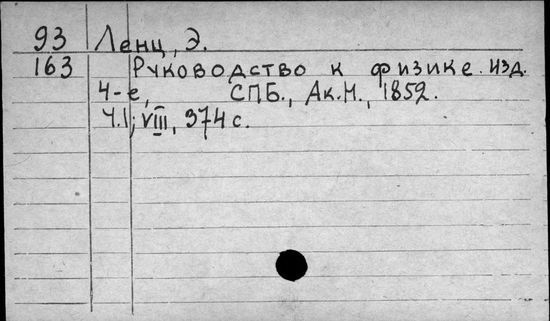 93 Ленц, Э.
163 Руководство к физике. изд.
4-е, СПБ., Ак.Н., 1852.
Ч.I; VIII, 374 с.